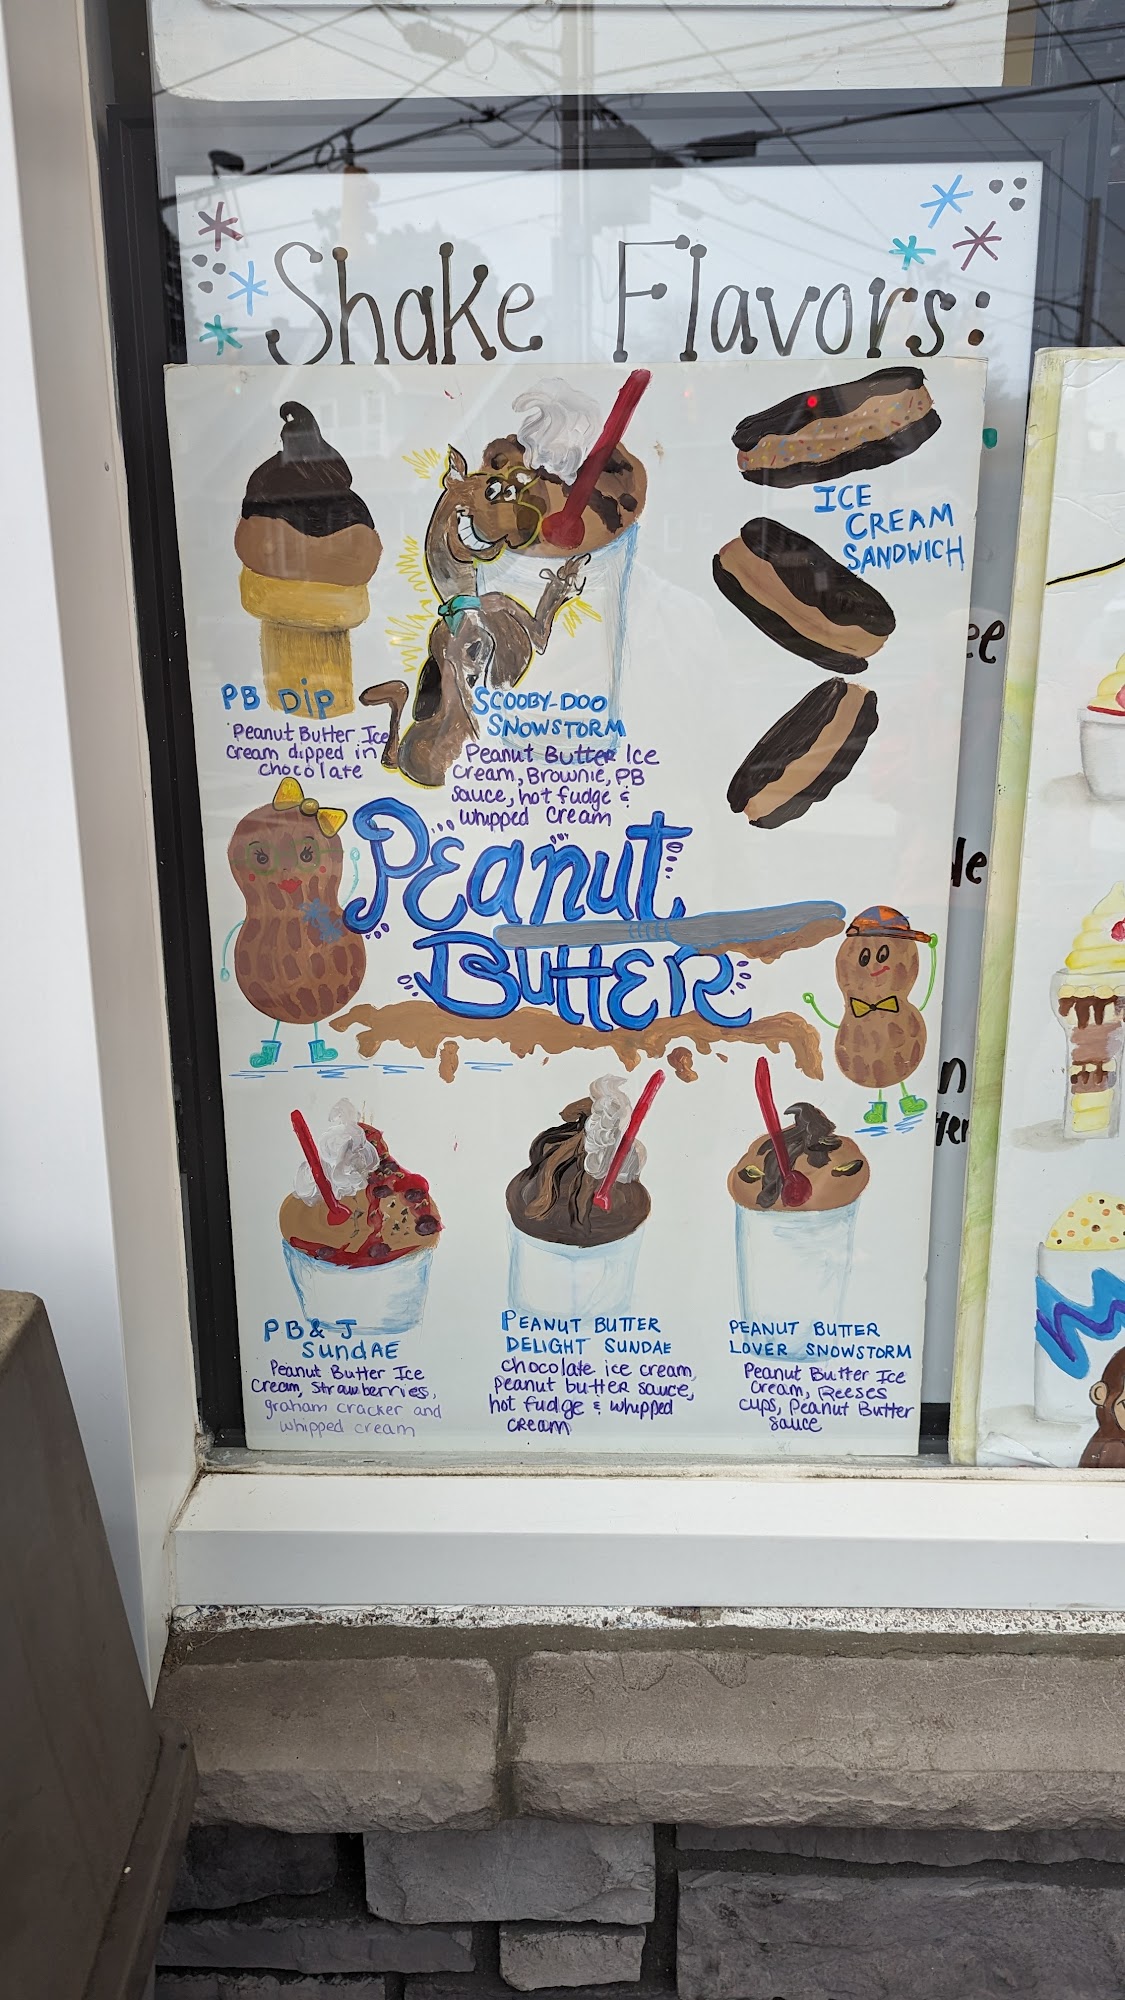 Shake Flavors:
PB Dip
Peanut Butter Ice
Cream dipped in
chocolate
SCOOBY-DOO
SNOWSTORM
Peanut Butter Ice
Cream, Brownie, PB
Sauce, hot fudge &
whipped cream
ICE
CREAM
SANDWICH
Peanut
Butter
PB & J
SundAE
Peanut Butter Ice
Cream, Strawberries,
graham cracker and
whipped cream
PEANUT BUTTER
DELIGHT SUNDAE
chocolate ice cream,
Peanut butter sauce,
hot fudge & whipped
cream
PEANUT BUTTER
LOVER SNOWSTORM
Peanut Butter Ice
Cream, Reeses
cups, Peanut Butter
Sauce